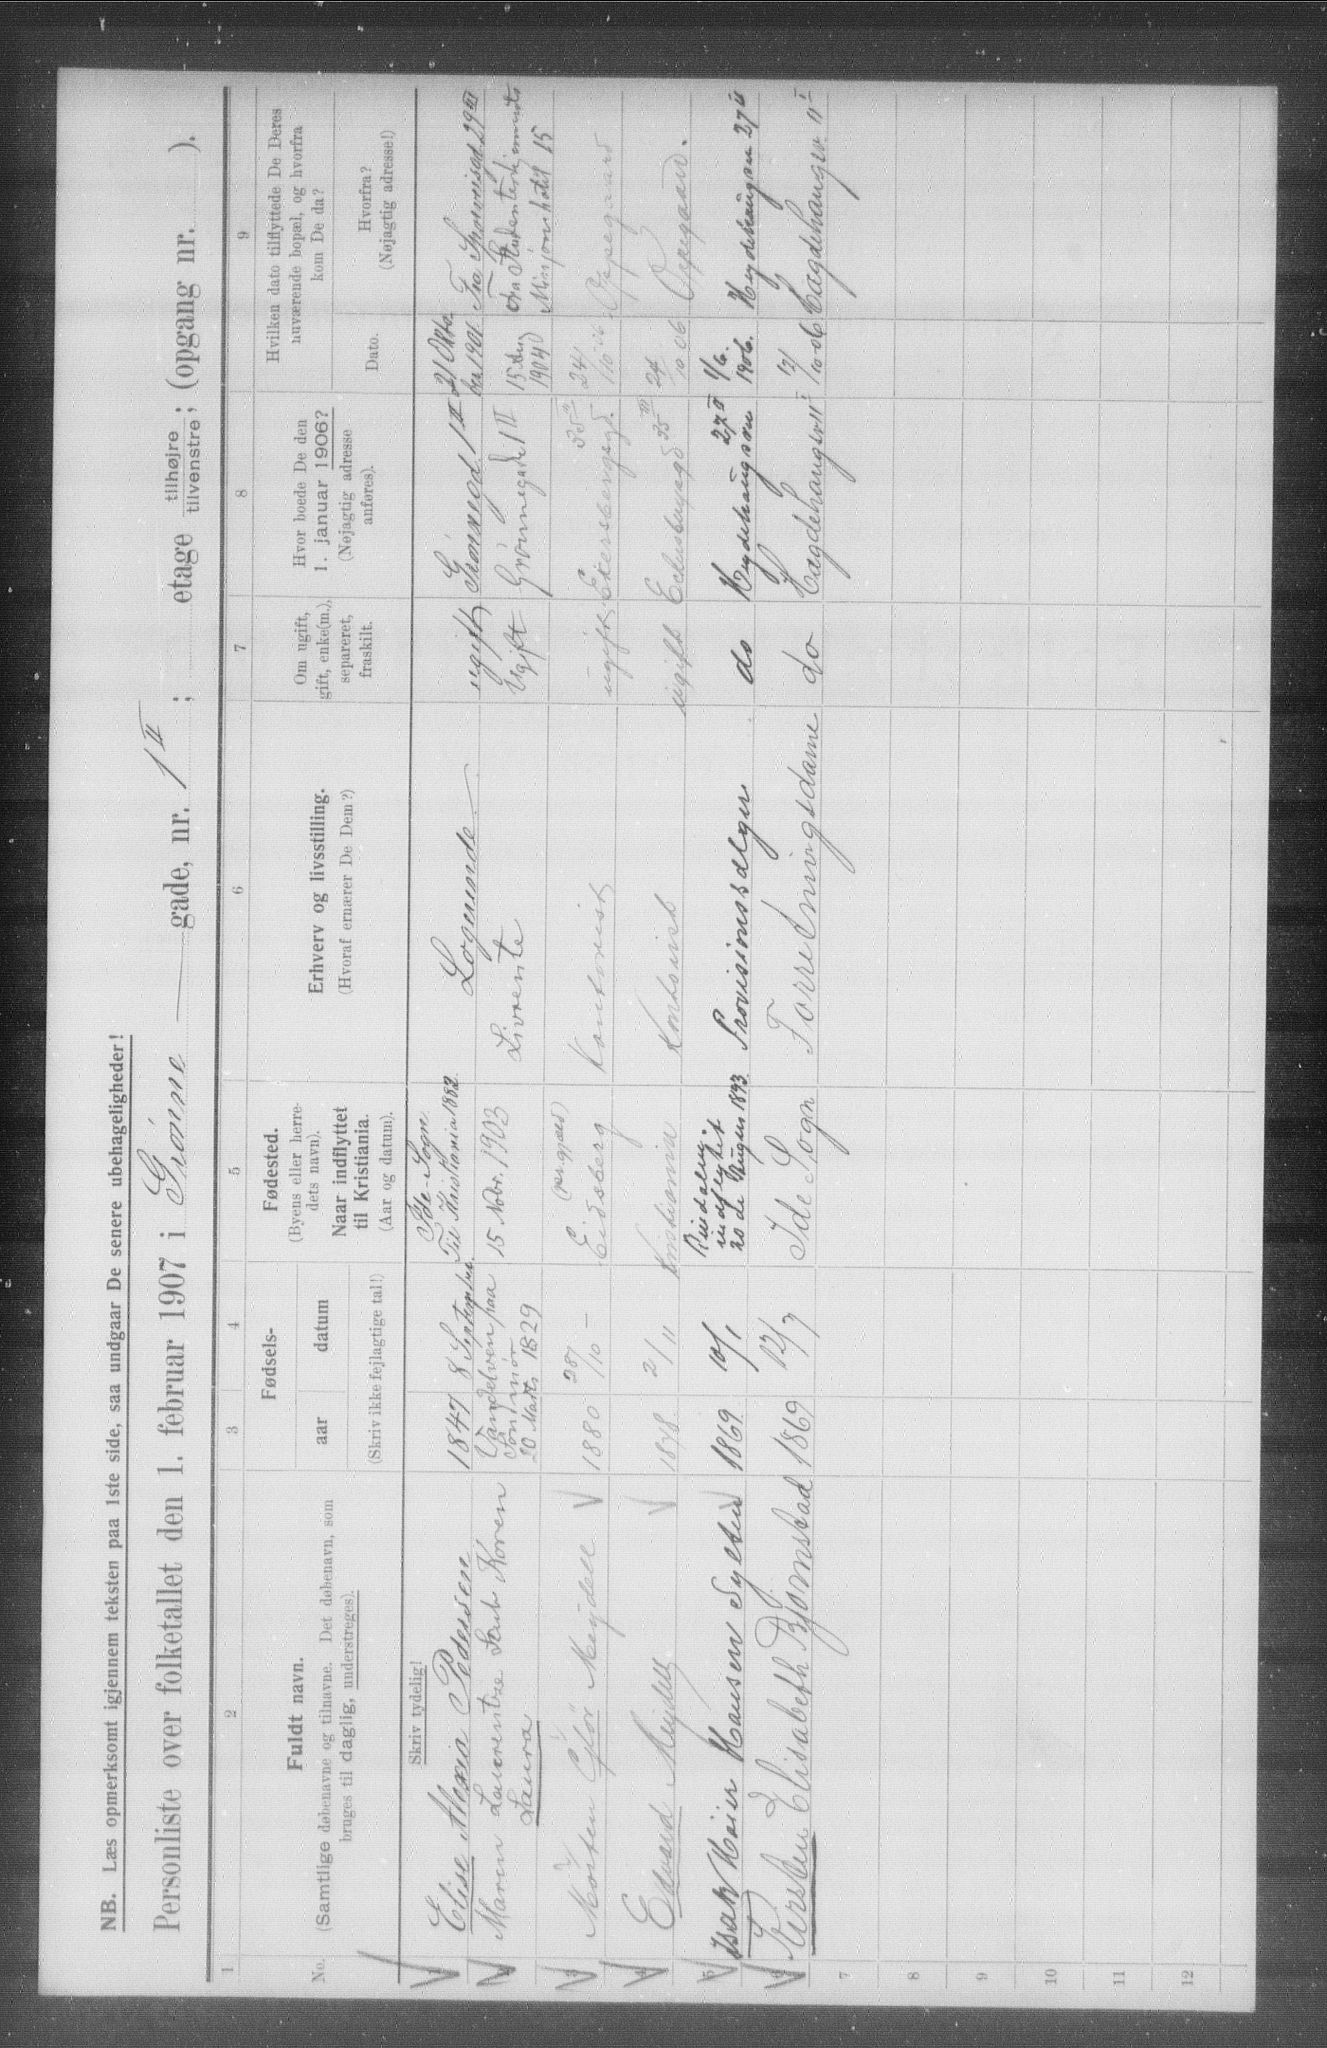 NB. Læs opmerksomt igjennem teksten paa 1ste side, saa undgaar De senere ubehageligheder!
Personliste over folketallet den 1. februar 1907 i Grønne gade, nr. 1 II ; etage tilhøjre tilvenstre; (opgang nr. ).
1 2 3 4 5 6 7 8 9
No.
Fuldt navn.
(Samtlige døbenavne og tilnavne. Det døbenavn, som
bruges til daglig, understreges).
Fødsels-
aar datum
(Skriv ikke fejlagtige tal!)
Fødested.
(Byens eller herre-
dets navn).
Naar indflyttet
til Kristiania.
(Aar og datum).
Erhverv og livsstilling.
(Hvoraf ernærer De Dem?)
Om ugift,
gift, enke(m.),
separeret,
fraskilt.
Hvor boede De den
1. januar 1906?
(Nøjagtig adresse
anføres).
Hvilken dato tilflyttede De Deres
nuværende bopæl, og hvorfra
kom De da?
Dato.
Hvorfra?
(Nøjagtig adresse!)
Skriv tydelig!
1 Elise Alexia Pedersen 1847 8 September Ide-Sogn Til Kristiania 1882 Logerende ugift 1 II 21 1901 Fra 29 III
2 Maren Laurentze Koren Laura 20 Marts 1829 15 Nobr. 1903 Livrente Ugift Grønnegade 1 II 15 1904 Fra 15
3 Morten Meydell 1880 28/10 Eidsberg Kontorist ugift Eilersbergsgd. 35 III 24/10 06 Oppegaard
4 Edvard Meydell 1878 2/11 Kristiania Kontorist ugift 35 III 24/10 06 Oppegaard.
5 Isak Høier Hansen Sylten 1869 10/1 indflyttet 1893 Provisionssælger do Hegdehaugsvn 27 II 1/6 1906. Hegdehaugsvn 27 II
6 Kirsten Elisabeth Bjørnstad 1869 12/7 Ide Sogn Forretningsdame do Hægdehaugsv. 11 I 12/10 06 Hægdehaugsv. 11 I
7
8
9
10
11
12